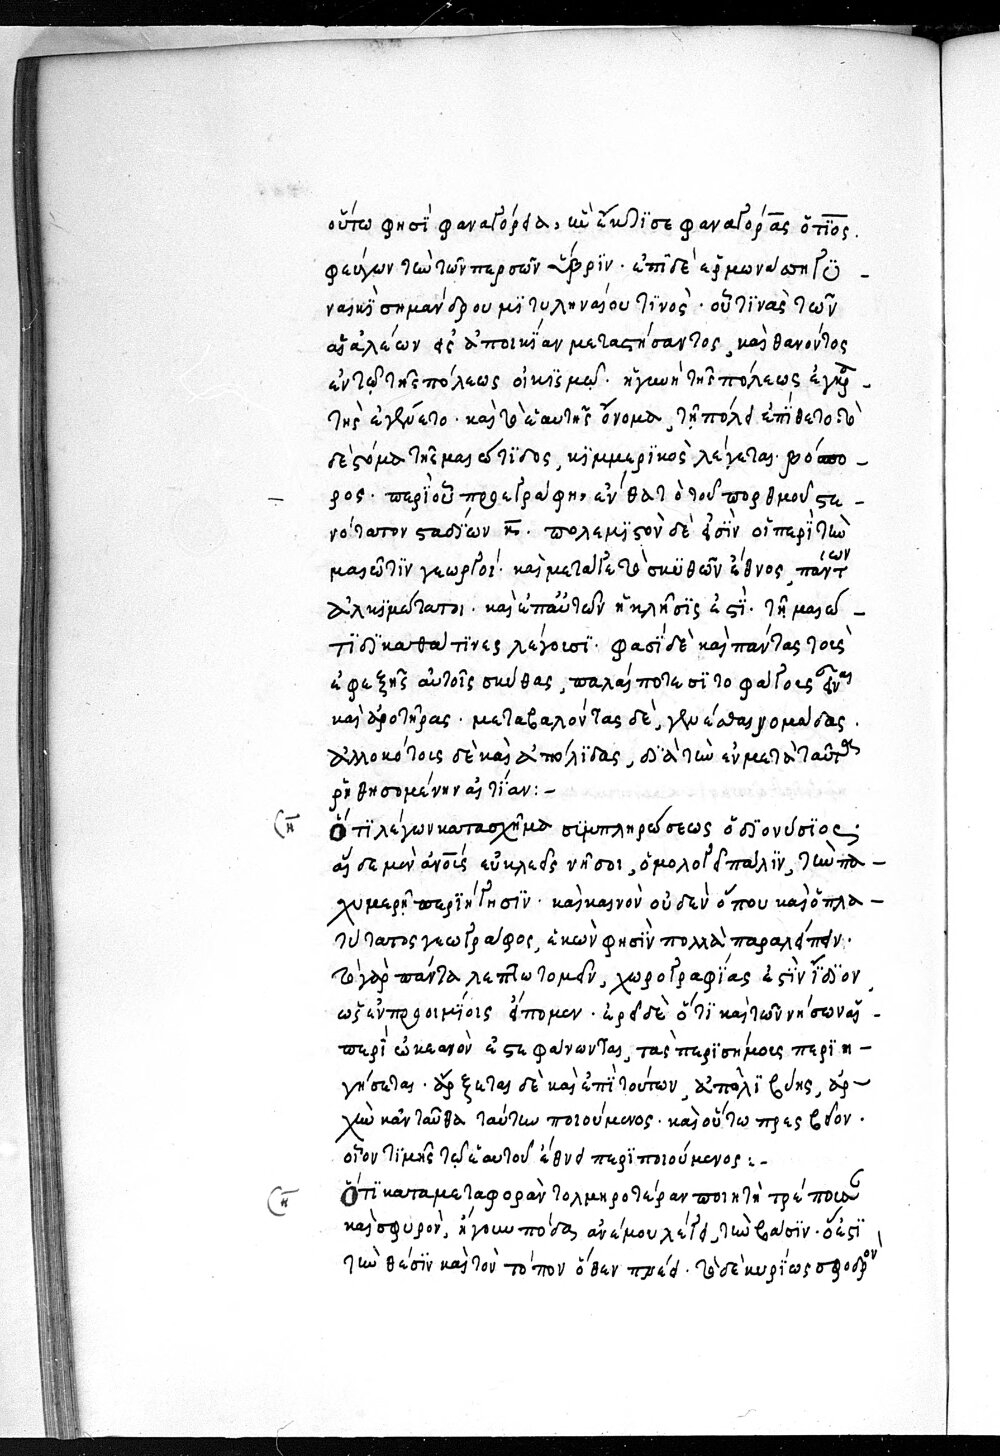 οὕτω φησὶ φαναγόρεια, ἣν ἔκτισε φαναγόρας ὁ τήϊος.
φεύγων τὴν τῶν περσῶν ὕβριν. ἐπὶ δὲ ἑρμώνεια τῇ γυ-
ναικὶ σημάνδρου μιτυληναίου τινὸς. οὗ τινὰς τῶν
αἰολέων εἰς ἀποικίαν μεταστήσαντος, καὶ θανόντος
ἐν τῷ τῆς πόλεως οἰκισμῷ. ἡ γυνὴ τῆς πόλεως ἐγκρα-
τὴς ἐγένετο. καὶ τὸ ἑαυτῆς ὄνομα, τῇ πόλει ἐπέθετο. τὸ
δὲ στόμα τῆς μαιώτιδος, κιμμερικὸς λέγεται βόσπο-
ρος. περὶ οὗ προεγράφη. ἐνθα τὸ τοῦ πορθμοῦ στε-
νότατον σταδίων η. πολεμιστὸν δέ εἰσὶν οἱ περὶ τὴν
μαιῶτιν γεωργοί. καὶ μετά γε τὸ σκυθῶν ἔθνος, πάντων
ἀλκιμώτατοι. καὶ ἐπ' αὐτῶν ἡ κλῆσις ἐστὶ τῇ μαιώ-
τιδι καθά τινες λέγουσι. φασὶ δὲ καὶ πάντας τοὺς
ἐφεξῆς αὐτοῖς σκύθας, πάλαι ποτὲ σιτοφάγους εἶναι
καὶ ἀροτῆρας. μεταβαλόντας δὲ, γενέσθαι νομάδας.
ἀλλοκότους δὲ καὶ ἀπόλιδας, διὰ τὴν ἐν μετὰ ταῦτα
ῥηθησομένην αἰτίαν:-
Ὅτι λέγων κατὰ σχῆμα συμπληρώσεως ὁ διονύσιος.
αἵδε μὲν ἀνοῖς εὐκλεεῖς νῆσοι, ὁμολογεῖ πάλιν, τὴν πα-
χυμερῆ περιήγησιν. καὶ καινὸν οὐδὲν ὅπου καὶ ὁ πλα-
τύτατος γεωγράφος, ἑκὼν φησὶν πολλὰ παραλείπειν.
τὸ γὰρ πάντα λεπτοτομεῖν, χωρογραφίας ἐστὶν ἴδιον,
ὡς ἐν προοιμίοις εἴπομεν. ἐρεῖ δὲ ὅτι καὶ τῶν νήσων αἳ
περὶ ὠκεανὸν ἐστεφάνωνται, τὰς περισήμους περιη-
γήσεται. ἄρξεται δὲ καὶ ἐπὶ τούτων, ἀπὸ λιβύης, ἀρ-
χὴν κἀνταῦθα ταύτην ποιούμενος. καὶ οὕτω πρεσβεῖον.
οἷον τιμῆς τῷ ἑαυτοῦ ἔθνει περιποιούμενος:-
Ὅτι κατὰ μεταφορὰν τολμηροτέραν ποιητῇ πρέπουσαν
καὶ σφυρὸν, ἤγουν πόδα ἀνέμου λέγει, τὴν βάσιν. ὅ ἐστι
τὴν θέσιν καὶ τὸν τόπον ὅθεν πνέει. τὸ δὲ κυρίως σφοδρὸν